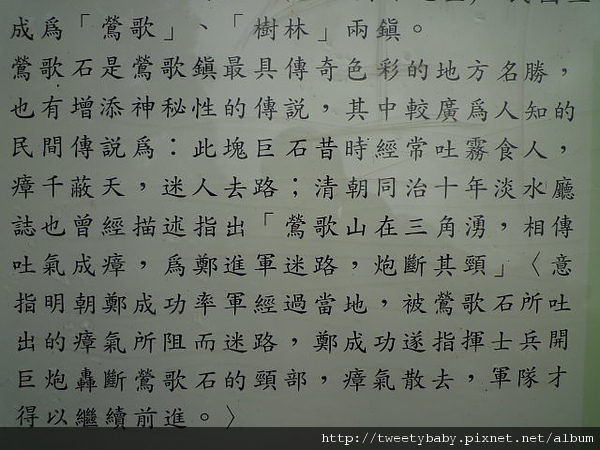 成為「鶯歌」、「樹林」兩鎮。
鶯歌石是鶯歌鎮最具傳奇色彩的地方名勝，
也有增添神秘性的傳說，其中較廣為人知的
民間傳說為：此塊巨石昔時經常吐霧食人，
瘴千蔽天，迷人去路；清朝同治十年淡水廳
誌也曾經描述指出「鶯歌山在三角湧，相傳
吐氣成瘴，為鄭進軍迷路，炮斷其頸」〈意
指明朝鄭成功率軍經過當地，被鶯歌石所吐
出的瘴氣所阻而迷路，鄭成功遂指揮士兵開
巨炮轟斷鶯歌石的頸部，瘴氣散去，軍隊才
得以繼續前進。〉
http://tweetybaby.pixnet.net/album